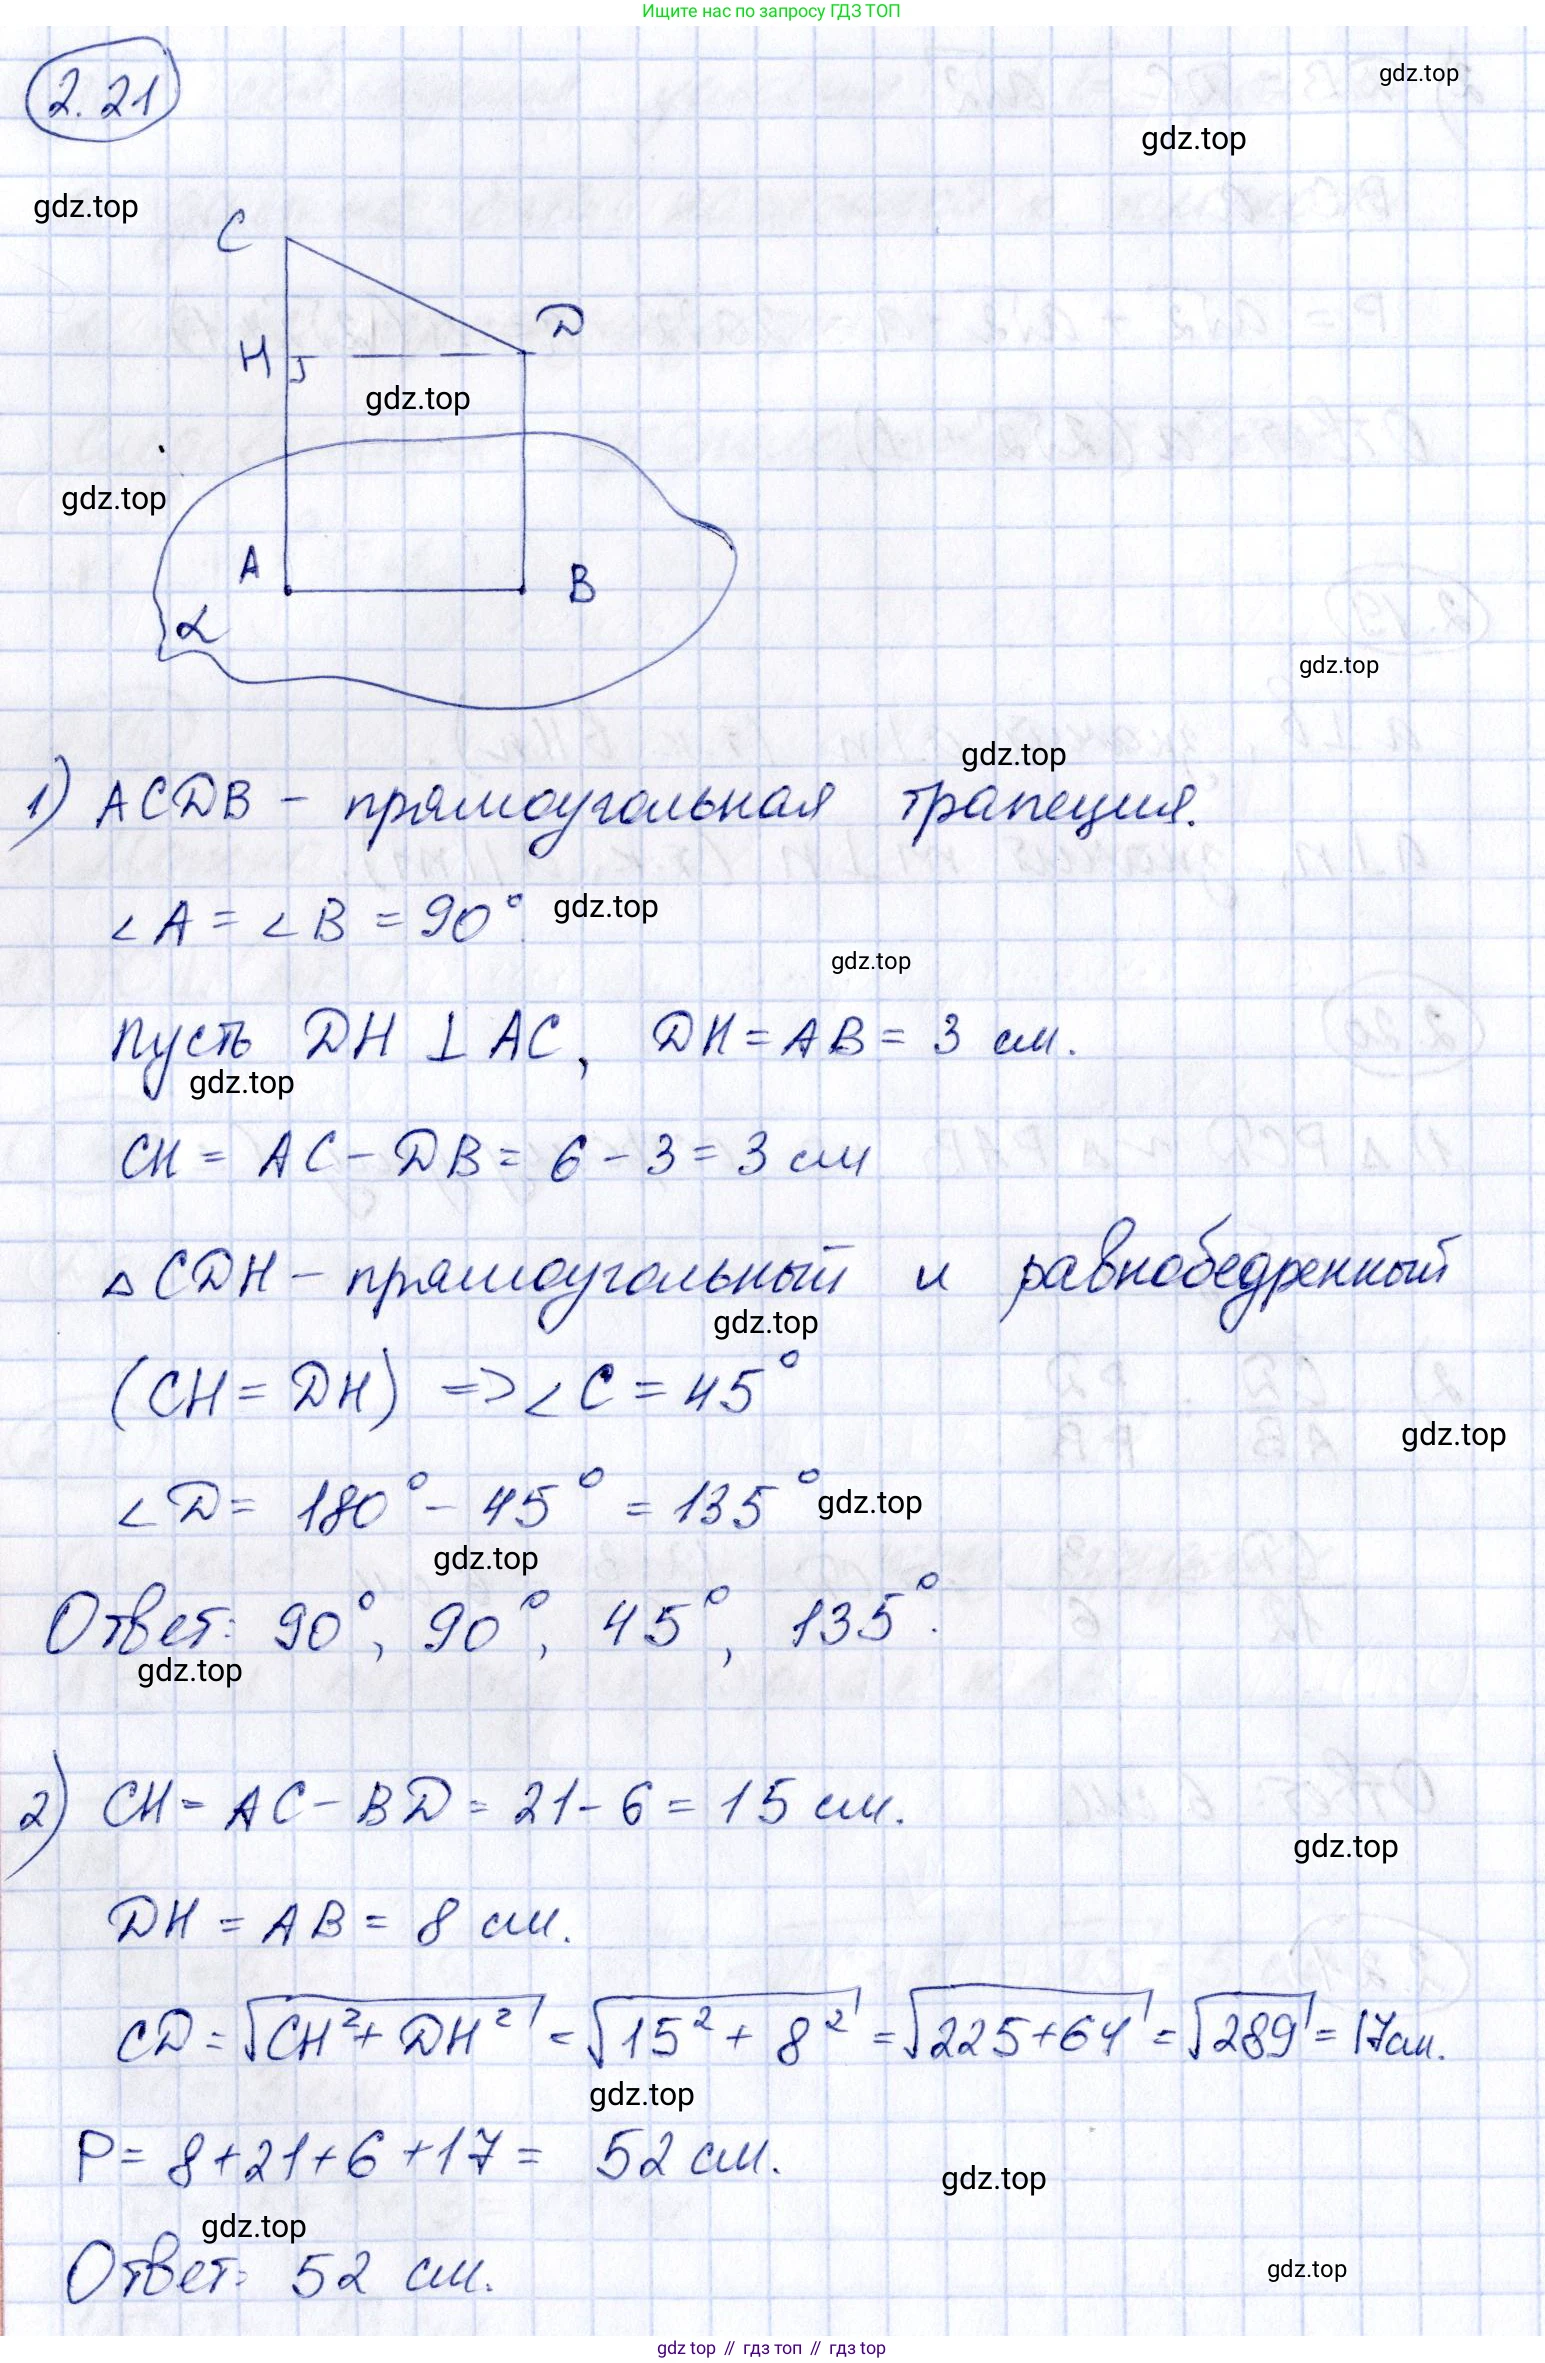 Ищите нас по запросу ГДЗ ТОП
2.21
gdz.top
gdz.top
gdz.top
C
H
D
gdz.top
gdz.top
A
B
α
gdz.top
gdz.top
1) ACDB - прямоугольная трапеция.
∠A = ∠B = 90°
gdz.top
gdz.top
Пусть DH ⊥ AC, DH = AB = 3 см.
gdz.top
CH = AC - DB = 6 - 3 = 3 см
△CDH - прямоугольный и равнобедренный
gdz.top
(CH = DH) => ∠C = 45°
gdz.top
∠D = 180° - 45° = 135°
gdz.top
gdz.top
Ответ: 90°, 90°, 45°, 135°.
gdz.top
2) CH = AC - BD = 21 - 6 = 15 см.
gdz.top
DH = AB = 8 см.
CD = √(CH² + DH²) = √(15² + 8²) = √(225+64) = √289 = 17см.
gdz.top
P = 8+21+6+17 = 52 см.
gdz.top
gdz.top
Ответ: 52 см.
gdz.top
gdz top // гдз топ // gdz top